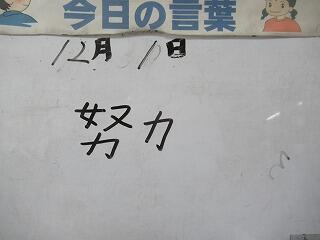 今日の言葉
12月 1日
努力